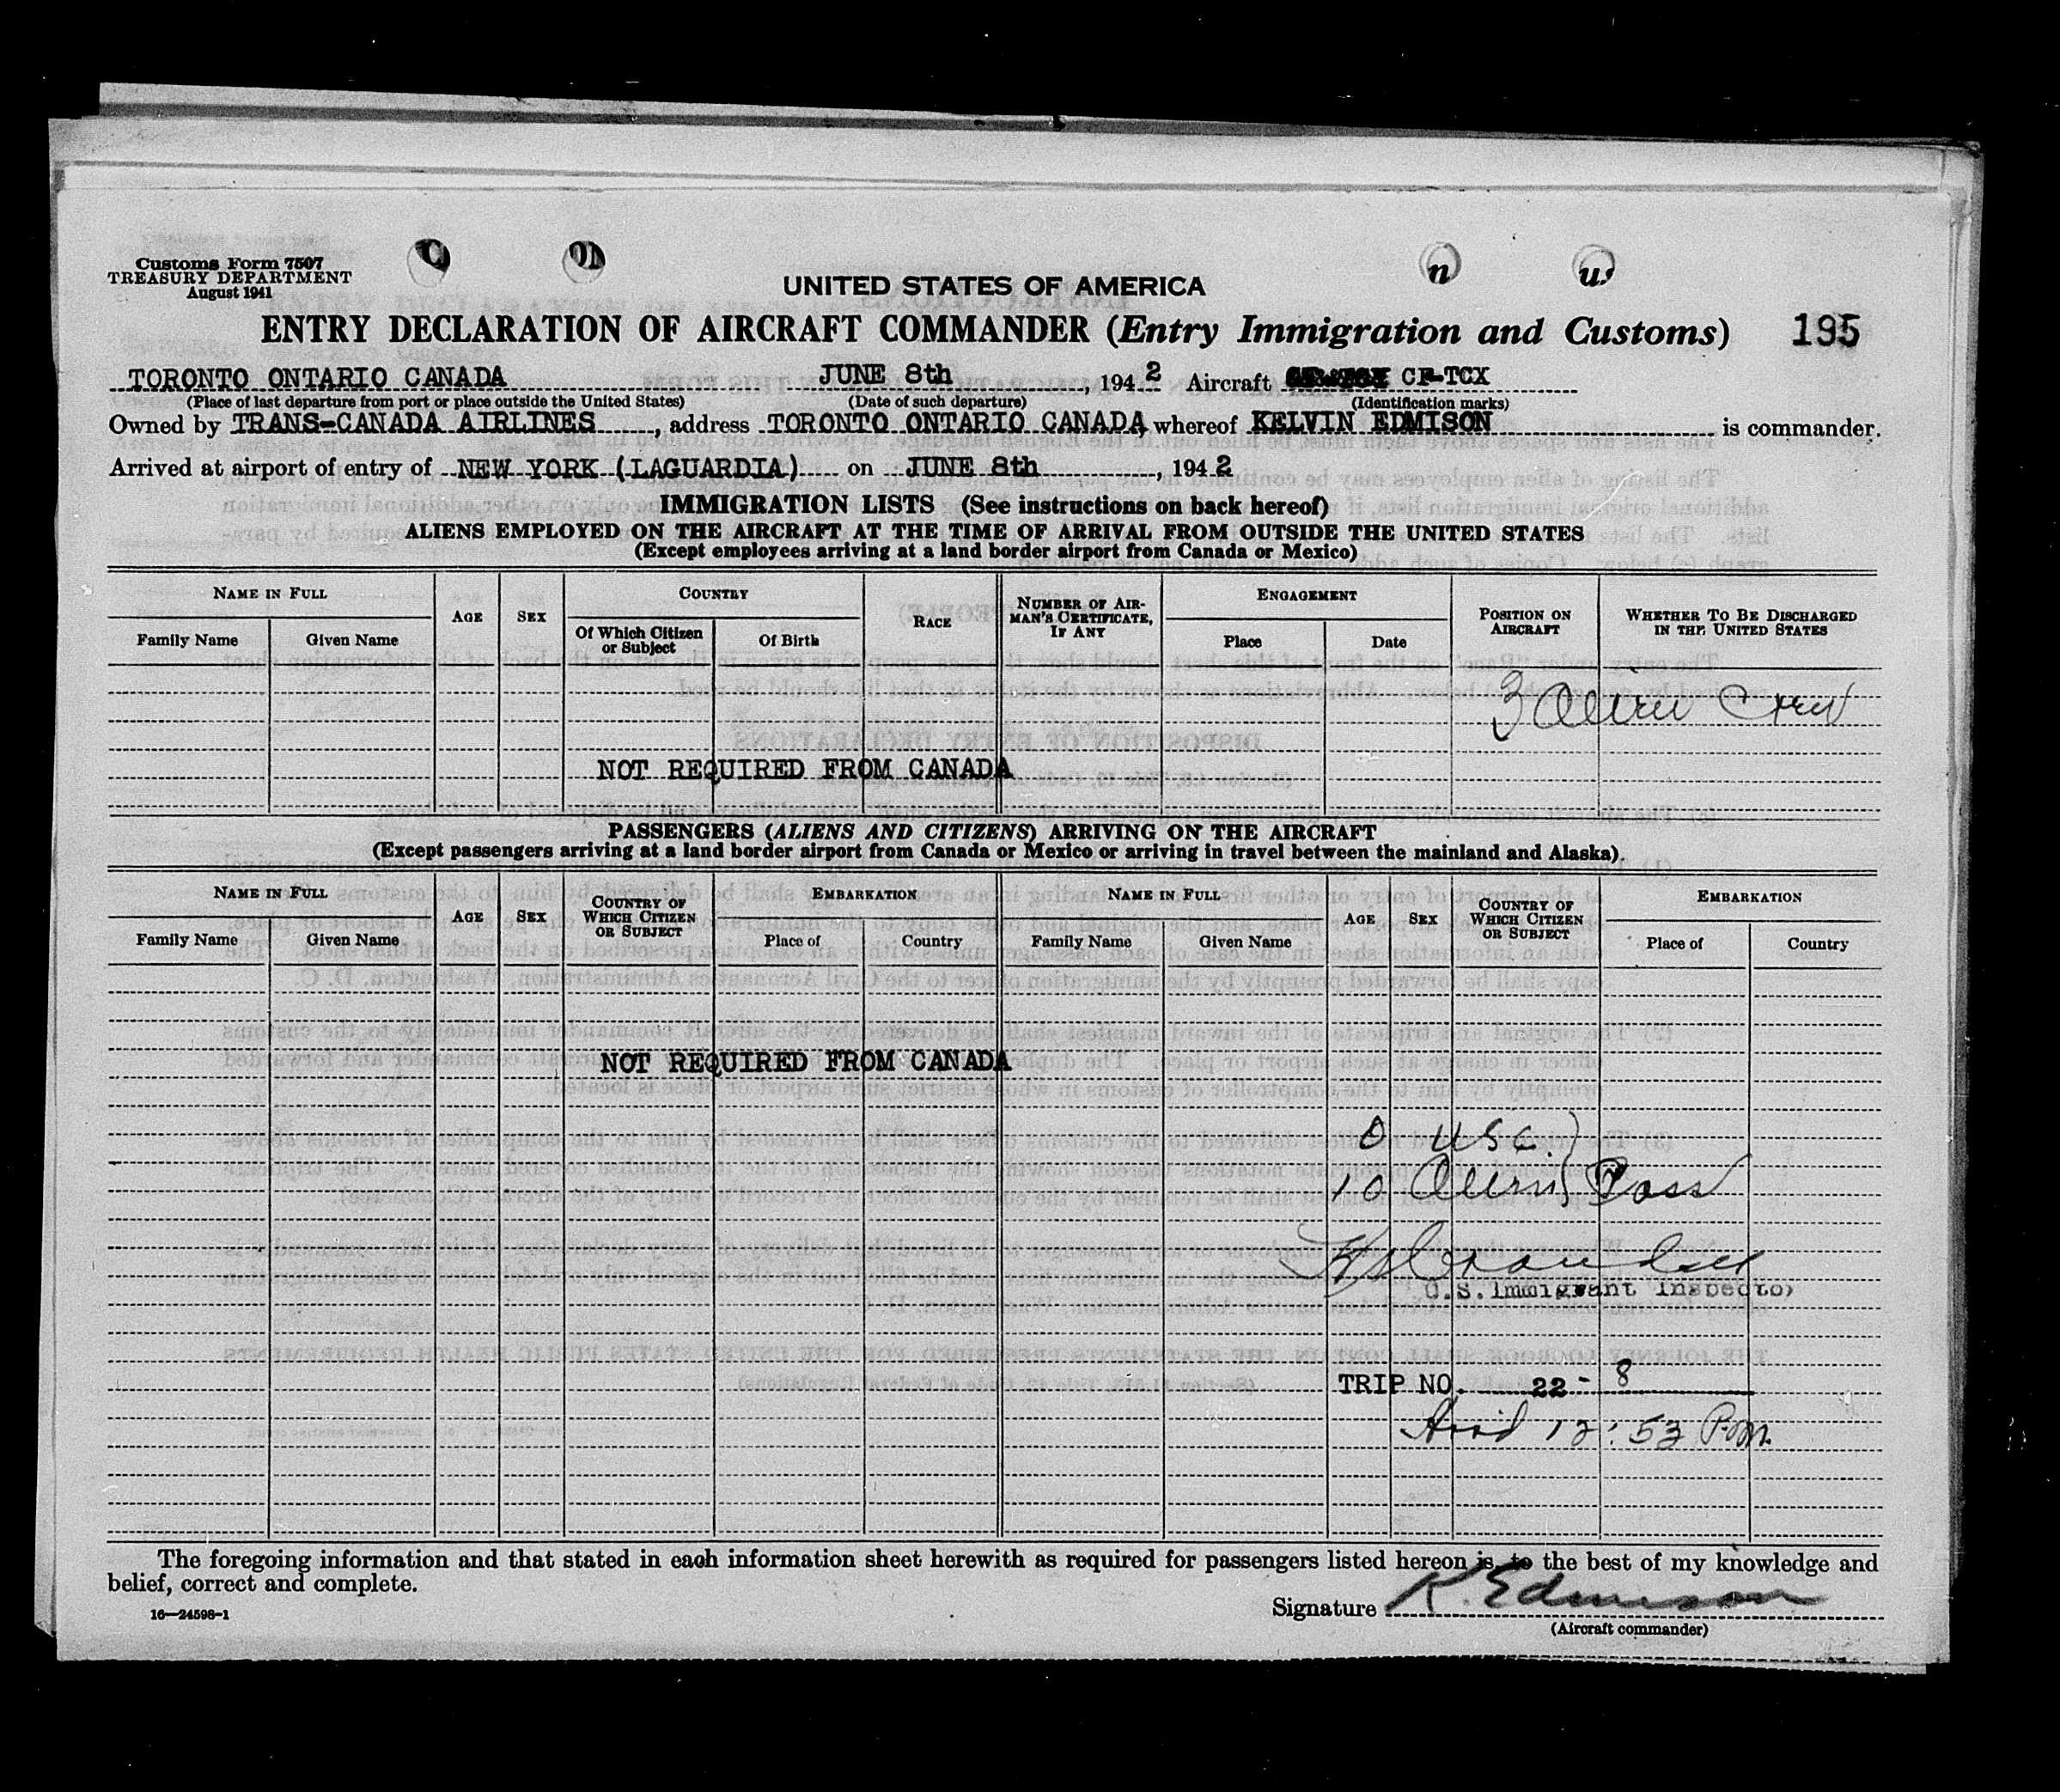 Customs Form 7507
TREASURY DEPARTMENT
August 1941
UNITED STATES OF AMERICA
ENTRY DECLARATION OF AIRCRAFT COMMANDER (Entry Immigration and Customs) 195
TORONTO ONTARIO CANADA JUNE 8th, 1942 Aircraft CF-TCX
(Place of last departure from port or place outside the United States) (Date of such departure) (Identification marks)
Owned by TRANS-CANADA AIRLINES, address TORONTO ONTARIO CANADA whereof KELVIN EDMISON is commander.
Arrived at airport of entry of NEW YORK (LAGUARDIA) on JUNE 8th, 1942
IMMIGRATION LISTS (See instructions on back hereof)
ALIENS EMPLOYED ON THE AIRCRAFT AT THE TIME OF ARRIVAL FROM OUTSIDE THE UNITED STATES
(Except employees arriving at a land border airport from Canada or Mexico)
NAME IN FULL AGE SEX COUNTRY RACE NUMBER OF AIRMAN'S CERTIFICATE, IF ANY ENGAGEMENT POSITION ON AIRCRAFT WHETHER TO BE DISCHARGED IN THE UNITED STATES
Family Name Given Name Of Which Citizen or Subject Of Birth Place Date
3 Alien Crew
NOT REQUIRED FROM CANADA
PASSENGERS (ALIENS AND CITIZENS) ARRIVING ON THE AIRCRAFT
(Except passengers arriving at a land border airport from Canada or Mexico or arriving in travel between the mainland and Alaska).
NAME IN FULL AGE SEX COUNTRY OF WHICH CITIZEN OR SUBJECT EMBARKATION NAME IN FULL AGE SEX COUNTRY OF WHICH CITIZEN OR SUBJECT EMBARKATION
Family Name Given Name Place of Country Family Name Given Name Place of Country
NOT REQUIRED FROM CANADA
0 USC
10 Aliens Pass
U.S. Immigrant Inspector
TRIP NO. 22-8
Arrd 12:53 P.M.
The foregoing information and that stated in each information sheet herewith as required for passengers listed hereon is, to the best of my knowledge and
belief, correct and complete.
16—24598-1
Signature K. Edmison
(Aircraft commander)